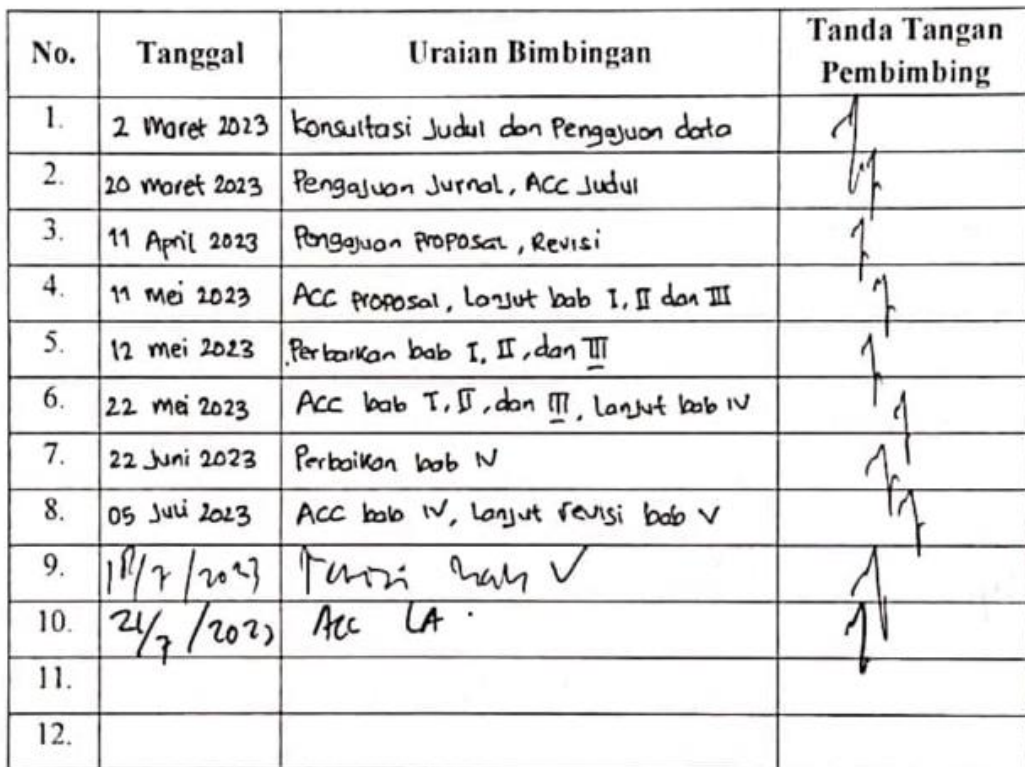 No. Tanggal Uraian Bimbingan Tanda Tangan Pembimbing
1. 2 Maret 2023 Konsultasi Judul dan Pengajuan data
2. 20 Maret 2023 Pengajuan Jurnal, ACC Judul
3. 11 April 2023 Pengajuan Proposal, Revisi
4. 11 Mei 2023 ACC Proposal, Lanjut bab I, II dan III
5. 12 Mei 2023 Perbaikan bab I, II, dan III
6. 22 Mei 2023 ACC bab I, II, dan III, Lanjut bab IV
7. 22 Juni 2023 Perbaikan bab IV
8. 05 Juli 2023 ACC bab IV, Lanjut revisi bab V
9. /7/2023 V
10. 21/7/2023 Acc LA.
11.
12.